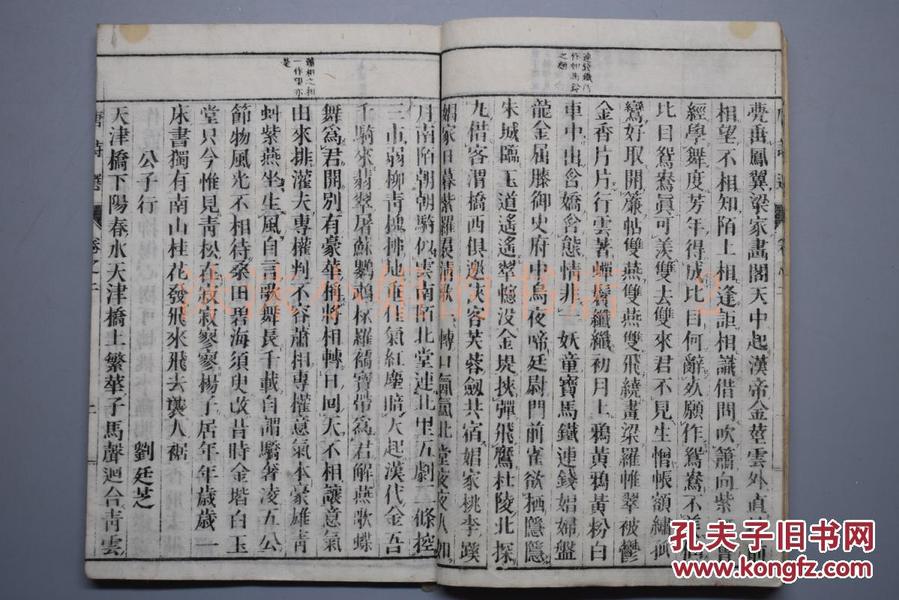 連錢鐵作
之
甍雙鳳翼梁家畫閣天中起漢帝金莖雲外直
相望不相知陌上相逢詎相識借問吹簫向紫
經學舞度芳年得成比目何辭死願作鴛鴦不
比目鴛鴦眞可羨雙去雙來君不見生憎帳額繡孤
鸞好取開簾帖雙燕雙燕雙飛繞畫梁羅帷翠被鬱
金香片片行雲著蟬鬢纖纖初月上鴉黃鴉黃粉白
車中出含嬌含態情非一妖童寶馬鐵連錢娼婦盤
龍金屈膝御史府中烏夜啼廷尉門前雀欲栖隱隱
朱城臨玉道遙遙翠幰没金堤挾彈飛鷹杜陵北探
九借客渭橋西俱邀俠客芙蓉劔共宿娼家桃李蹊
娼家日暮紫羅裙清歌一轉口氛氳北堂夜夜人如
月南陌朝朝騎似雲南陌北堂連北里五劇三條控
三市弱柳青槐拂地垂佳氣紅塵暗天起漢代金吾
千騎來翡翠屠蘇鸚鵡杯羅襦寶帶爲君解燕歌
舞爲君開別有豪華稱將相轉日回天不相讓意氣
由來排灌夫專權判不容蕭相專權意氣本豪雄青
虬紫燕坐生風自言歌舞長千載自謂驕奢凌五公
節物風光不相待桑田碧海須臾改昔時金堦白玉
堂只今惟見青松在寂寂寥寥楊子居年年歲歲一
床書獨有南山桂花發飛來飛去襲人裾
公子行
劉廷芝
天津橋下陽春水天津橋上繁華子馬聲迴合青雲
蕭相之相
一作望亦
是
唐詩選
卷之二
孔夫子旧书网
www.kongfz.com